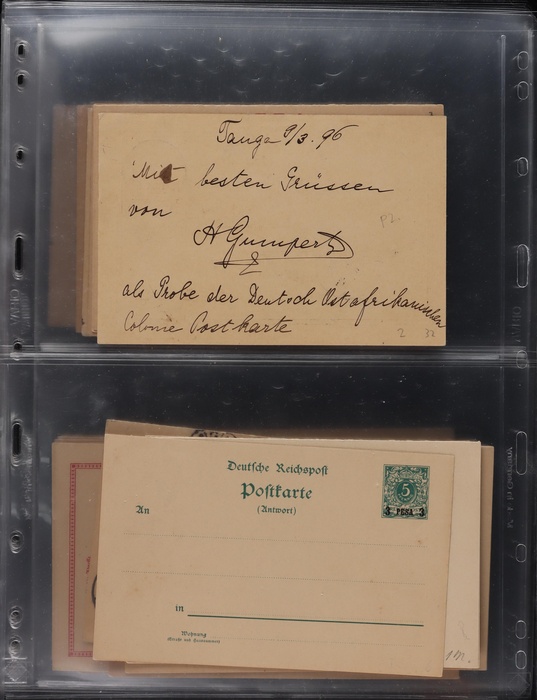 Tanga 9/3. 96
Mit besten Grüssen
von
H Gumpertz
als Probe der Deutsch Ostafrikanischen
Colonie Postkarte
P2
2 32
Deutsche Reichspost
Postkarte
(Antwort)
An
5
3 PESA 3
in
Wohnung
(Straße und Hausnummer)